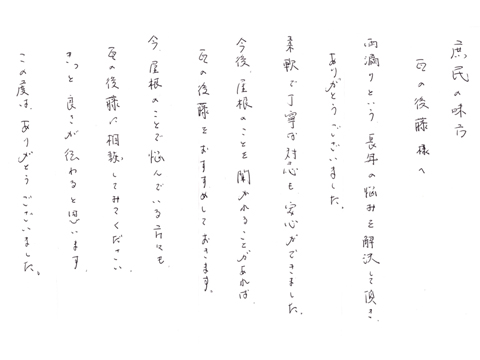 庶民の味方
瓦の後藤様へ
雨漏りという長年の悩みを解決して頂き
ありがとうございました。
柔軟で丁寧な対応も安心ができました。
今後、屋根のことを聞かれることがあれば
瓦の後藤をおすすめしておきます。
今、屋根のことで悩んでいる方々も
瓦の後藤に相談してみてください
きっと良さが伝わると思います。
この度は、ありがとうございました。